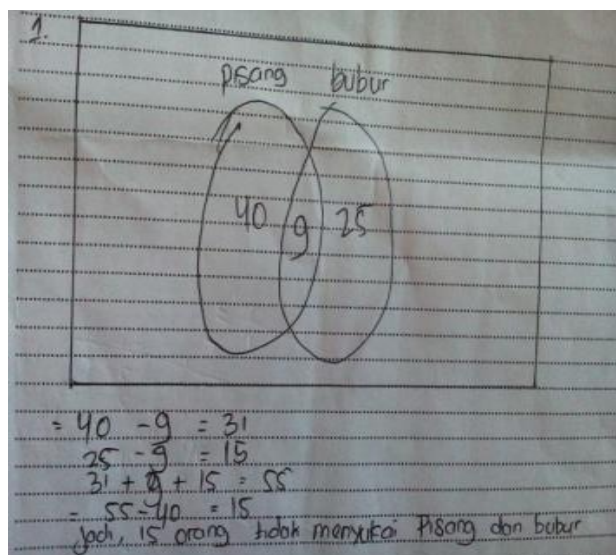 1.
pisang bubur
40 9 25
= 40 - 9 = 31
25 - 9 = 15
31 + 9 + 15 = 55
= 55 - 40 = 15
jadi, 15 orang tidak menyukai Pisang dan bubur